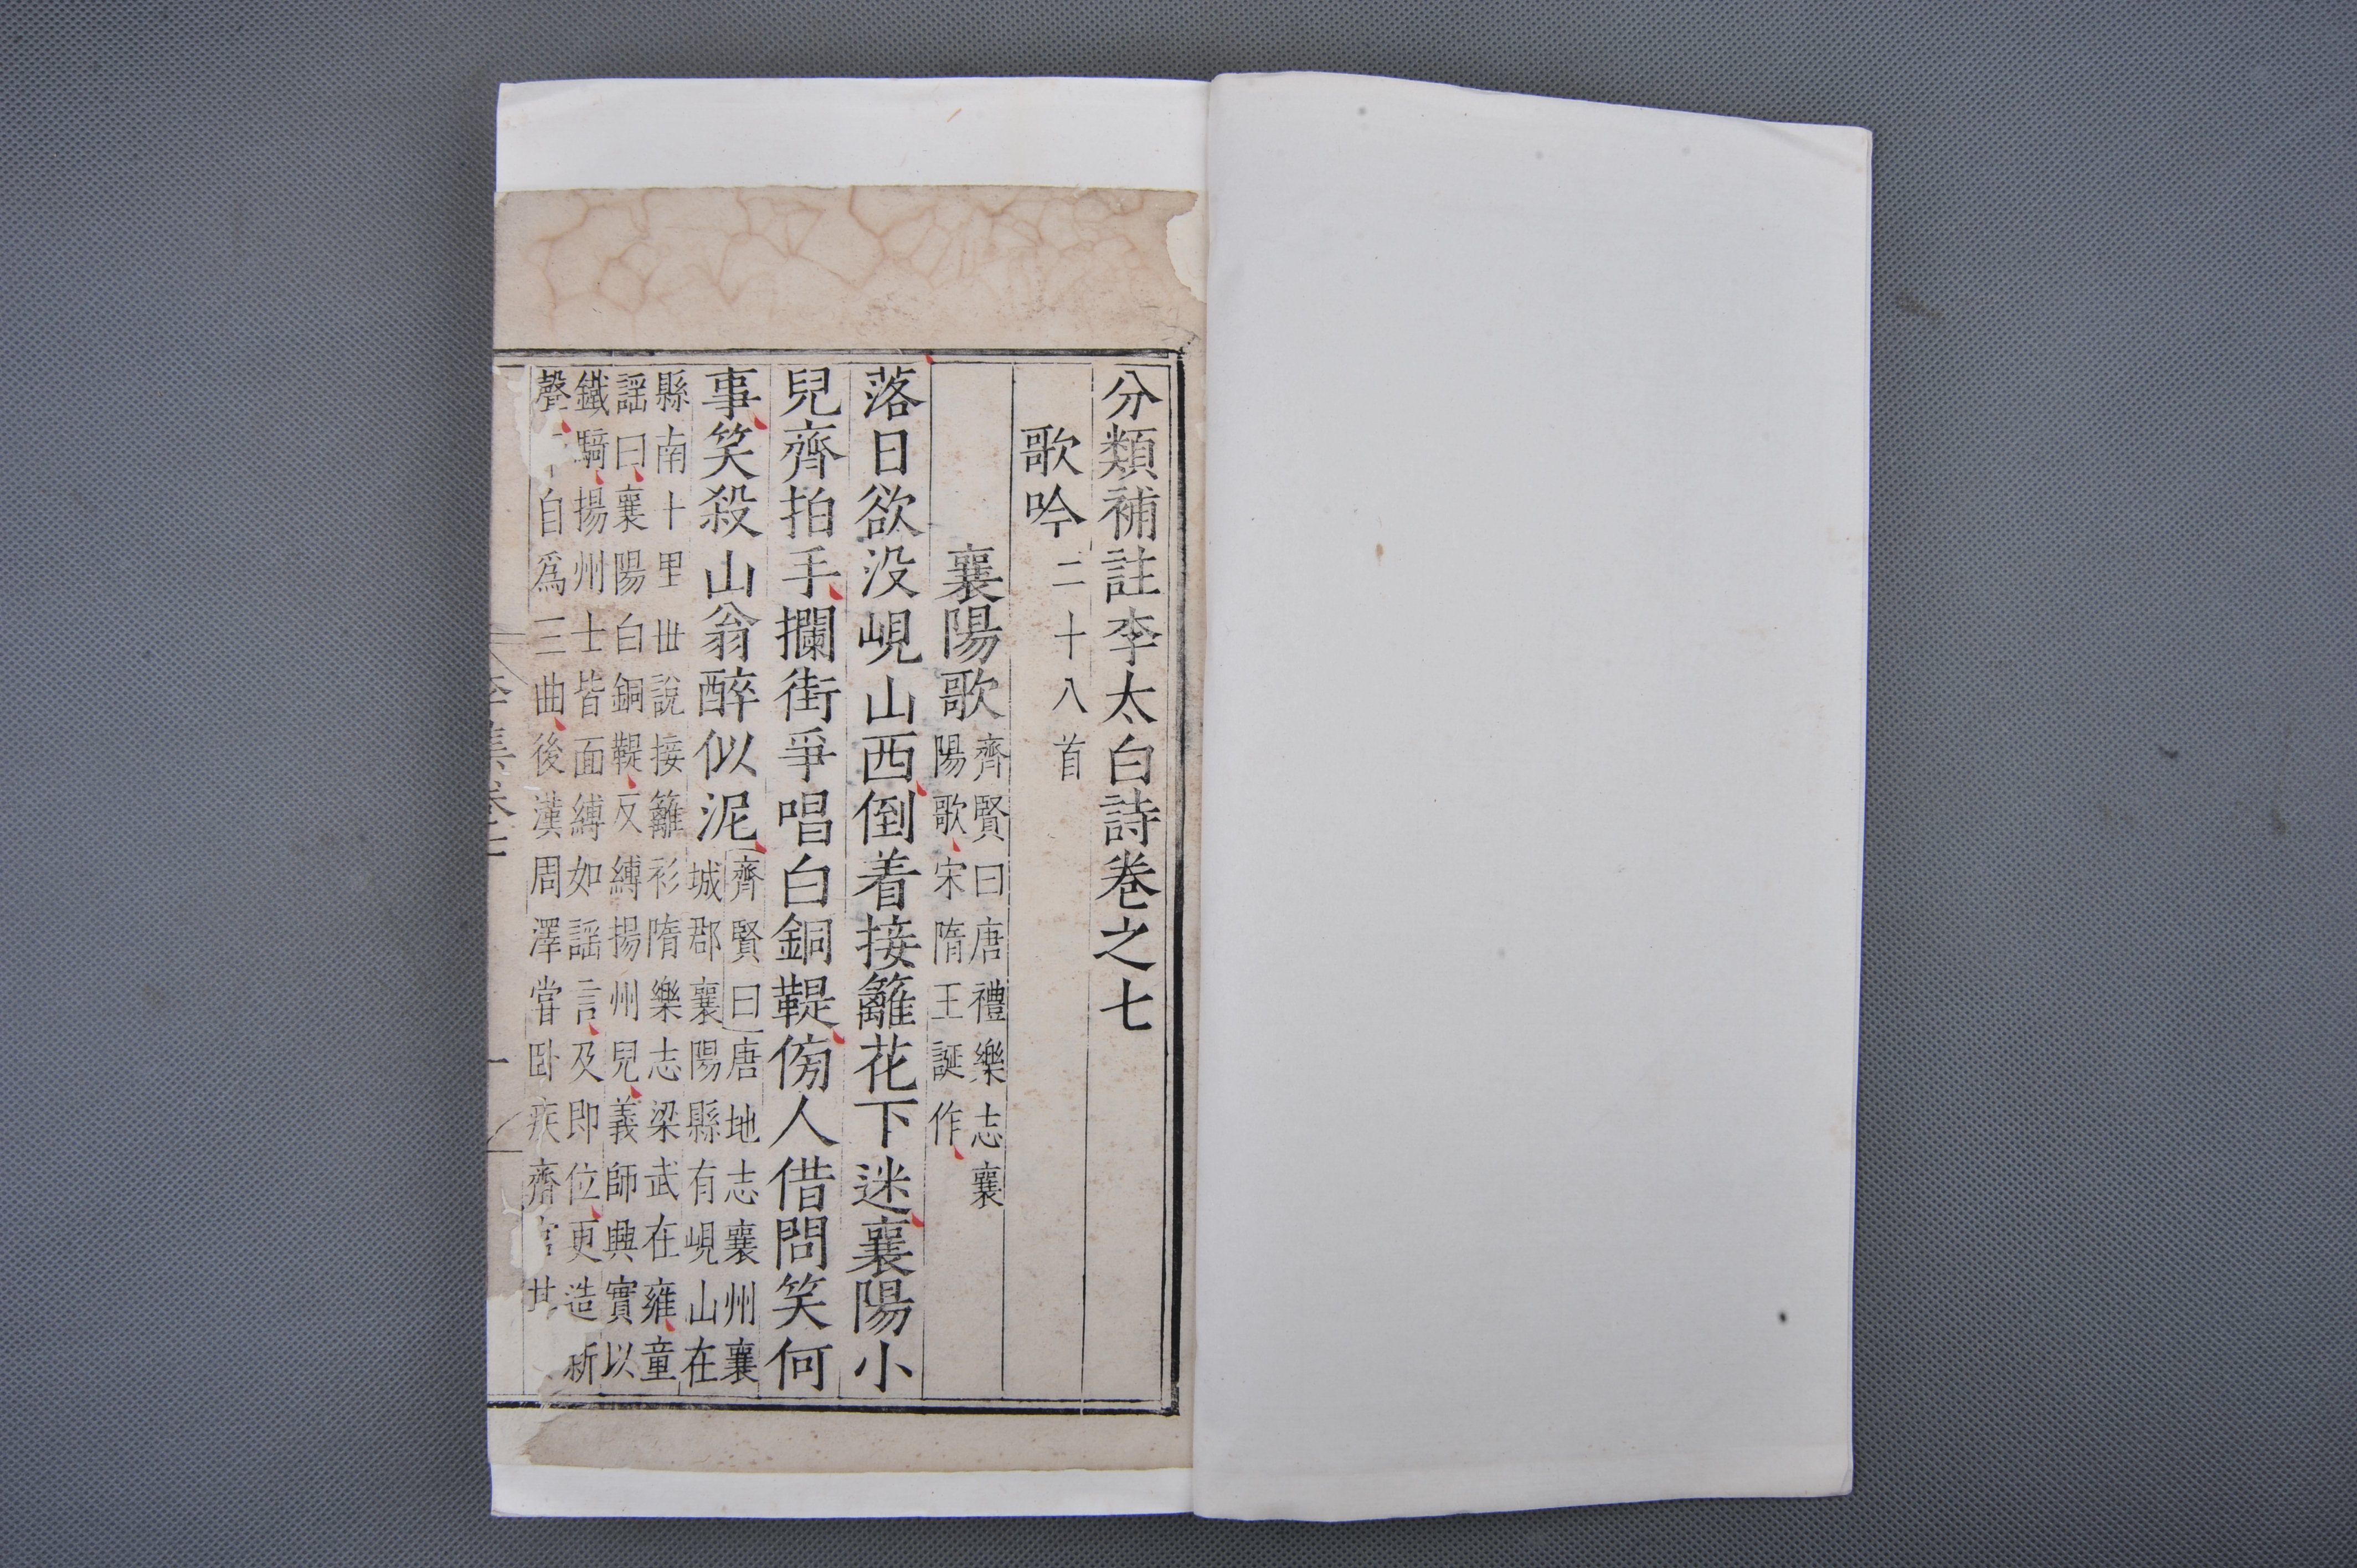 分類補註李太白詩卷之七
歌吟二十八首
襄陽歌齊賢曰唐禮樂志襄
陽歌宋隋王誕作
落日欲没峴山西倒着接籬花下迷襄陽小
兒齊拍手攔街爭唱白銅鞮傍人借問笑何
事笑殺山翁醉似泥齊賢曰唐地志襄州襄
城郡襄陽縣有峴山在
縣南十里世說接籬衫隋樂志梁武在雍童
謡曰襄陽白銅鞮反縛揚州兒義師興實以
鐵騎揚州士皆面縛如謡言及即位更造新
聲自爲三曲後漢周澤嘗卧疾齋宮其